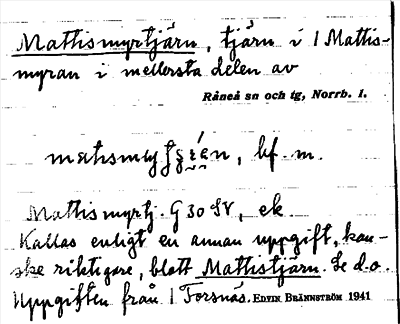 Mattismyrtjärn, tjärn i 1 Mattis-
myran i mellersta delen av
Råneå sn och tg, Norrb. l.
bf. m.
Mattismyrtj. G 30 SV, ek
Kallas enligt en annan uppgift, kan-
ske riktigare, blott Mattistjärn. Se d.o.
Uppgiften från 1 Forsnäs. EDVIN BRÄNNSTRÖM 1941